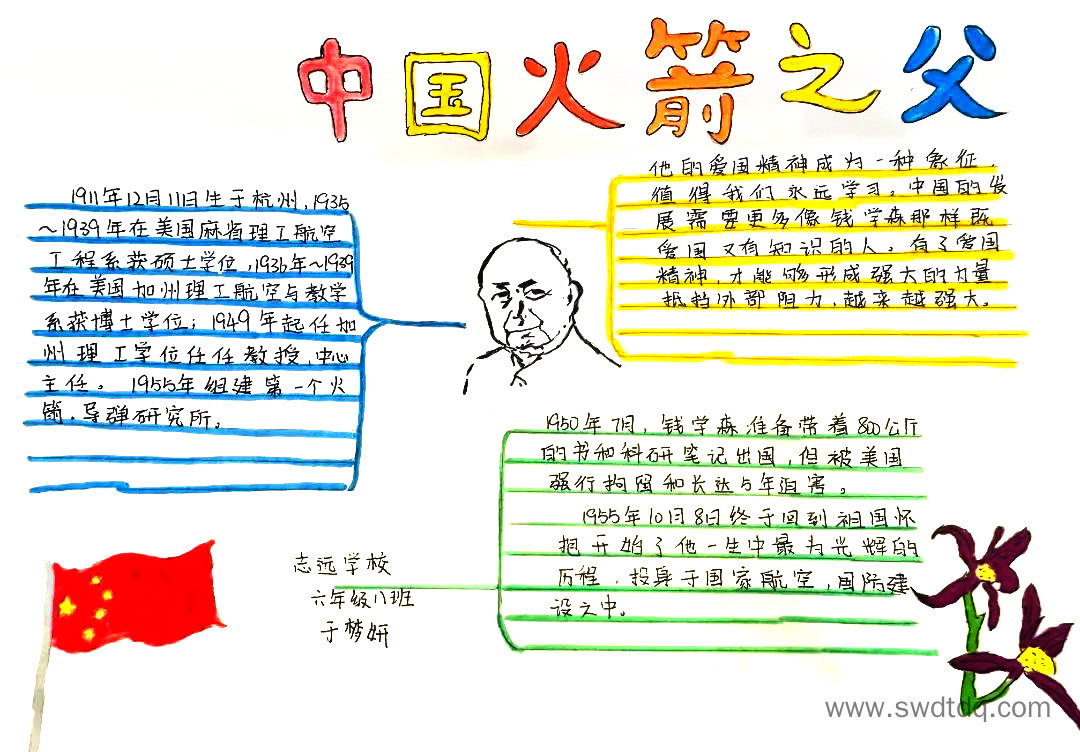 中国火箭之父
1911年12月11日生于杭州,1935
～1939年在美国麻省理工航空
工程系获硕士学位,1936年～1939
年在美国加州理工航空与数学
系获博士学位；1949年起任加
州理工学位任任教授,中心
主任。1955年组建第一个火
箭,导弹研究所。
他的爱国精神成为一种象征，
值得我们永远学习。中国的发
展需要更多像钱学森那样既
爱国又有知识的人。有了爱国
精神,才能够形成强大的力量
抵挡外部阻力,越来越强大。
1950年7月,钱学森准备带着800公斤
的书和科研笔记出国,但被美国
强行拘留和长达5年迫害。
1955年10月8日终于回到祖国怀
抱开始了他一生中最为光辉的
历程,投身于国家航空,国防建
设之中。
志远学校
六年级八班
于梦妍
www.swdtdq.com